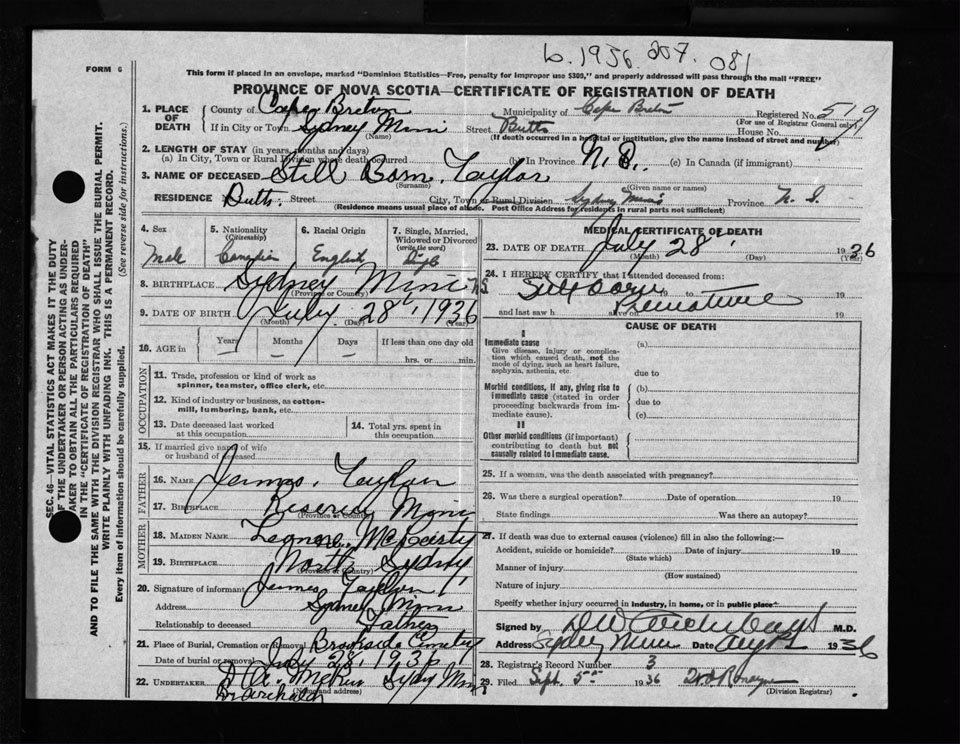 6.1936 207.081
FORM 6
This form if placed in an envelope, marked "Dominion Statistics—Free, penalty for improper use $300," and properly addressed will pass through the mail "FREE"
PROVINCE OF NOVA SCOTIA—CERTIFICATE OF REGISTRATION OF DEATH
1. PLACE OF DEATH
County of Cape Breton Municipality of Cape Breton Registered No.
(For use of Registrar General only)
If in City or Town Sydney Mines Street Butts House No.
(Name) (If death occurred in a hospital or institution, give the name instead of street and number)
2. LENGTH OF STAY (in years, months and days)
(a) In City, Town or Rural Division where death occurred (b) In Province (c) In Canada (if immigrant)
3. NAME OF DECEASED Still Born Taylor
(Surname) (Given name or names)
RESIDENCE Butts Street City, Town or Rural Division Sydney Mines Province N. S.
(Residence means usual place of abode. Post Office Address for residents in rural parts not sufficient)
4. Sex
Male
5. Nationality
(Citizenship)
Canadian
6. Racial Origin
English
7. Single, Married, Widowed or Divorced
(write the word)
Single
8. BIRTHPLACE Sydney Mines N.S.
(Province or Country)
9. DATE OF BIRTH July 28, 1936
(Month) (Day) (Year)
10. AGE in Years Months Days If less than one day old
hrs. or min.
OCCUPATION
11. Trade, profession or kind of work as
spinner, teamster, office clerk, etc.
12. Kind of industry or business, as cotton-
mill, lumbering, bank, etc.
13. Date deceased last worked
at this occupation
14. Total yrs. spent in
this occupation
15. If married give name of wife
or husband of deceased
FATHER
16. NAME James Taylor
17. BIRTHPLACE Reserve Mines
(Province or Country)
MOTHER
18. MAIDEN NAME
19. BIRTHPLACE North Sydney
(Province or Country)
20. Signature of informant James Taylor
Address Sydney Mines
Relationship to deceased Father
21. Place of Burial, Cremation or Removal Brookside Cemetery
Date of burial or removal July 28, 1936
22. UNDERTAKER Sydney Mines
(Name and address)
MEDICAL CERTIFICATE OF DEATH
23. DATE OF DEATH July 28, 1936
(Month) (Day) (Year)
24. I HEREBY CERTIFY that I attended deceased from:
Stillborn 19 to 19
Premature
and last saw h alive on 19
CAUSE OF DEATH
I
Immediate cause
Give disease, injury or complica-
tion which caused death, not the
mode of dying, such as heart failure,
asphyxia, asthenia, etc.
(a)
due to
Morbid conditions, if any, giving rise to
immediate cause (stated in order
proceeding backwards from im-
mediate cause).
(b)
due to
(c)
II
Other morbid conditions (if important)
contributing to death but not
causally related to immediate cause.
25. If a woman, was the death associated with pregnancy?
26. Was there a surgical operation? Date of operation 19
State findings Was there an autopsy?
27. If death was due to external causes (violence) fill in also the following:—
Accident, suicide or homicide? Date of injury 19
(State which)
Manner of injury
(How sustained)
Nature of injury
Specify whether injury occurred in industry, in home, or in public place
Signed by M.D.
Address Sydney Mines Date 1936
28. Registrar's Record Number 3
29. Filed Sept. 5th 1936
(Division Registrar)
SEC. 46—VITAL STATISTICS ACT MAKES IT THE DUTY
OF THE UNDERTAKER OR PERSON ACTING AS UNDER-
TAKER TO OBTAIN ALL THE PARTICULARS REQUIRED
IN THE "CERTIFICATE OF REGISTRATION OF DEATH"
AND TO FILE THE SAME WITH THE DIVISION REGISTRAR WHO SHALL ISSUE THE BURIAL PERMIT.
WRITE PLAINLY WITH UNFADING INK. THIS IS A PERMANENT RECORD.
Every item of information should be carefully supplied. (See reverse side for instructions.)